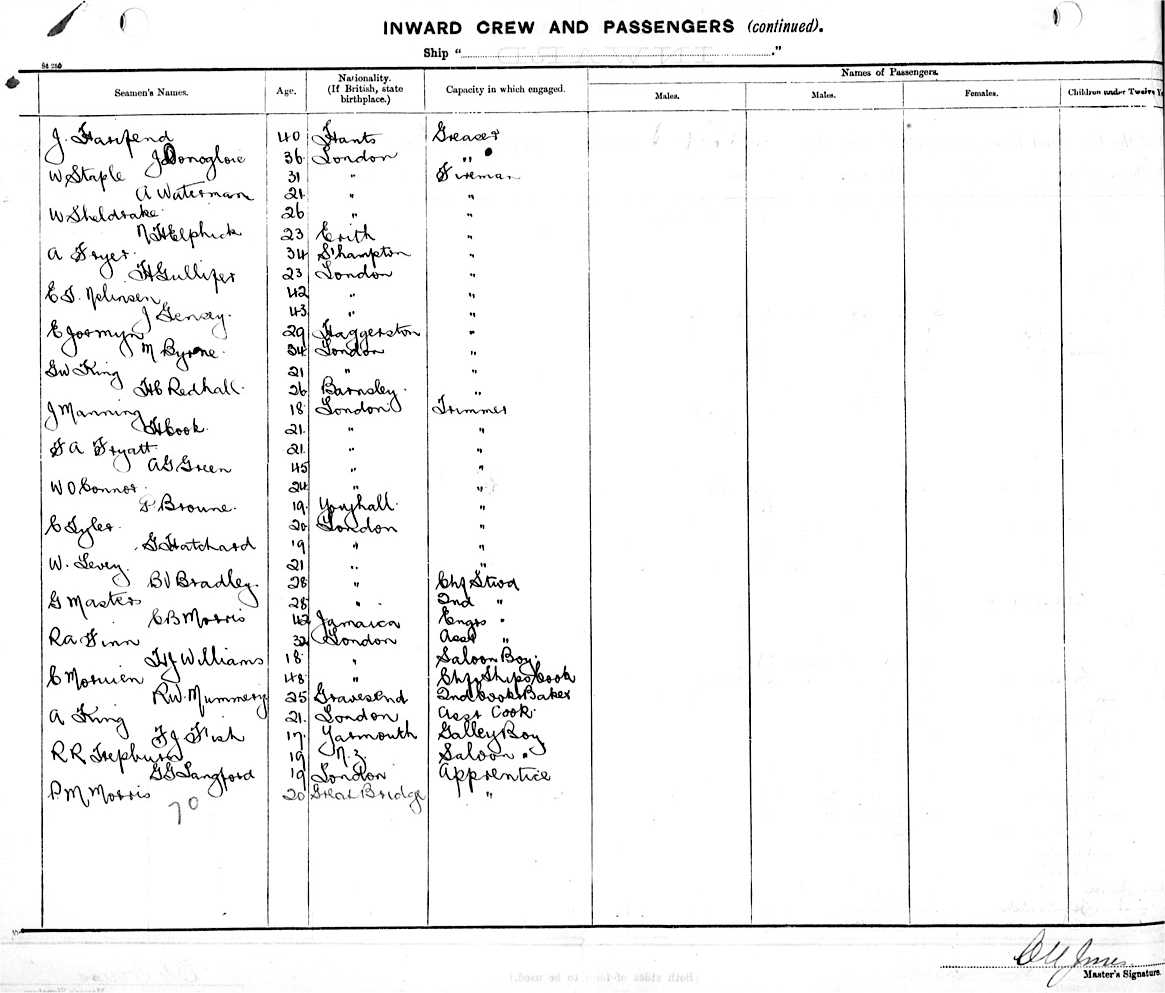 INWARD CREW AND PASSENGERS (continued).
Ship "....................."
Seamen's Names. Age. Nationality. (If British, state birthplace.) Capacity in which engaged. Names of Passengers.
Males. Males. Females. Children under Twelve
J. Harifend 40 Hants Greaser
J Donoghue 36 London "
W Staple 31 " Fireman
A Waterman 21 " "
W Sheldrake 26 " "
N H Elphick 23 Erith "
A Fryer 34 S'hampton "
H Gullifer 23 London "
E T. 42 " "
J 43 " "
E Jormyn 29 Haggerston "
M Byrne 34 London "
G W King 21 " "
H C Redhall 26 Barnsley "
J Manning 18 London Trimmer
H Cook 21 " "
F A Fryatt 21 " "
A G Green 45 " "
W O Connor 24 " "
Browne 19 Youghall "
C Tyler 20 London "
G Hatchard 19 " "
W. Levey 21 " "
B V Bradley 28 " Chf Stwd
G Masters 28 " 2nd "
C B Morris 42 Jamaica Engrs "
R A Finn 32 London Asst "
H J Williams 18 " Saloon Boy
C 48 " Chf Ships Cook
R.W. Mummery 25 Gravesend 2nd Cook & Baker
A King 21 London Asst Cook
F J Fish 17 Yarmouth Galley Boy
R R Hepburn 19 N.Z Saloon "
G G Langford 19 London Apprentice
P M Morris 20 Great Bridge "
70
Master's Signature.